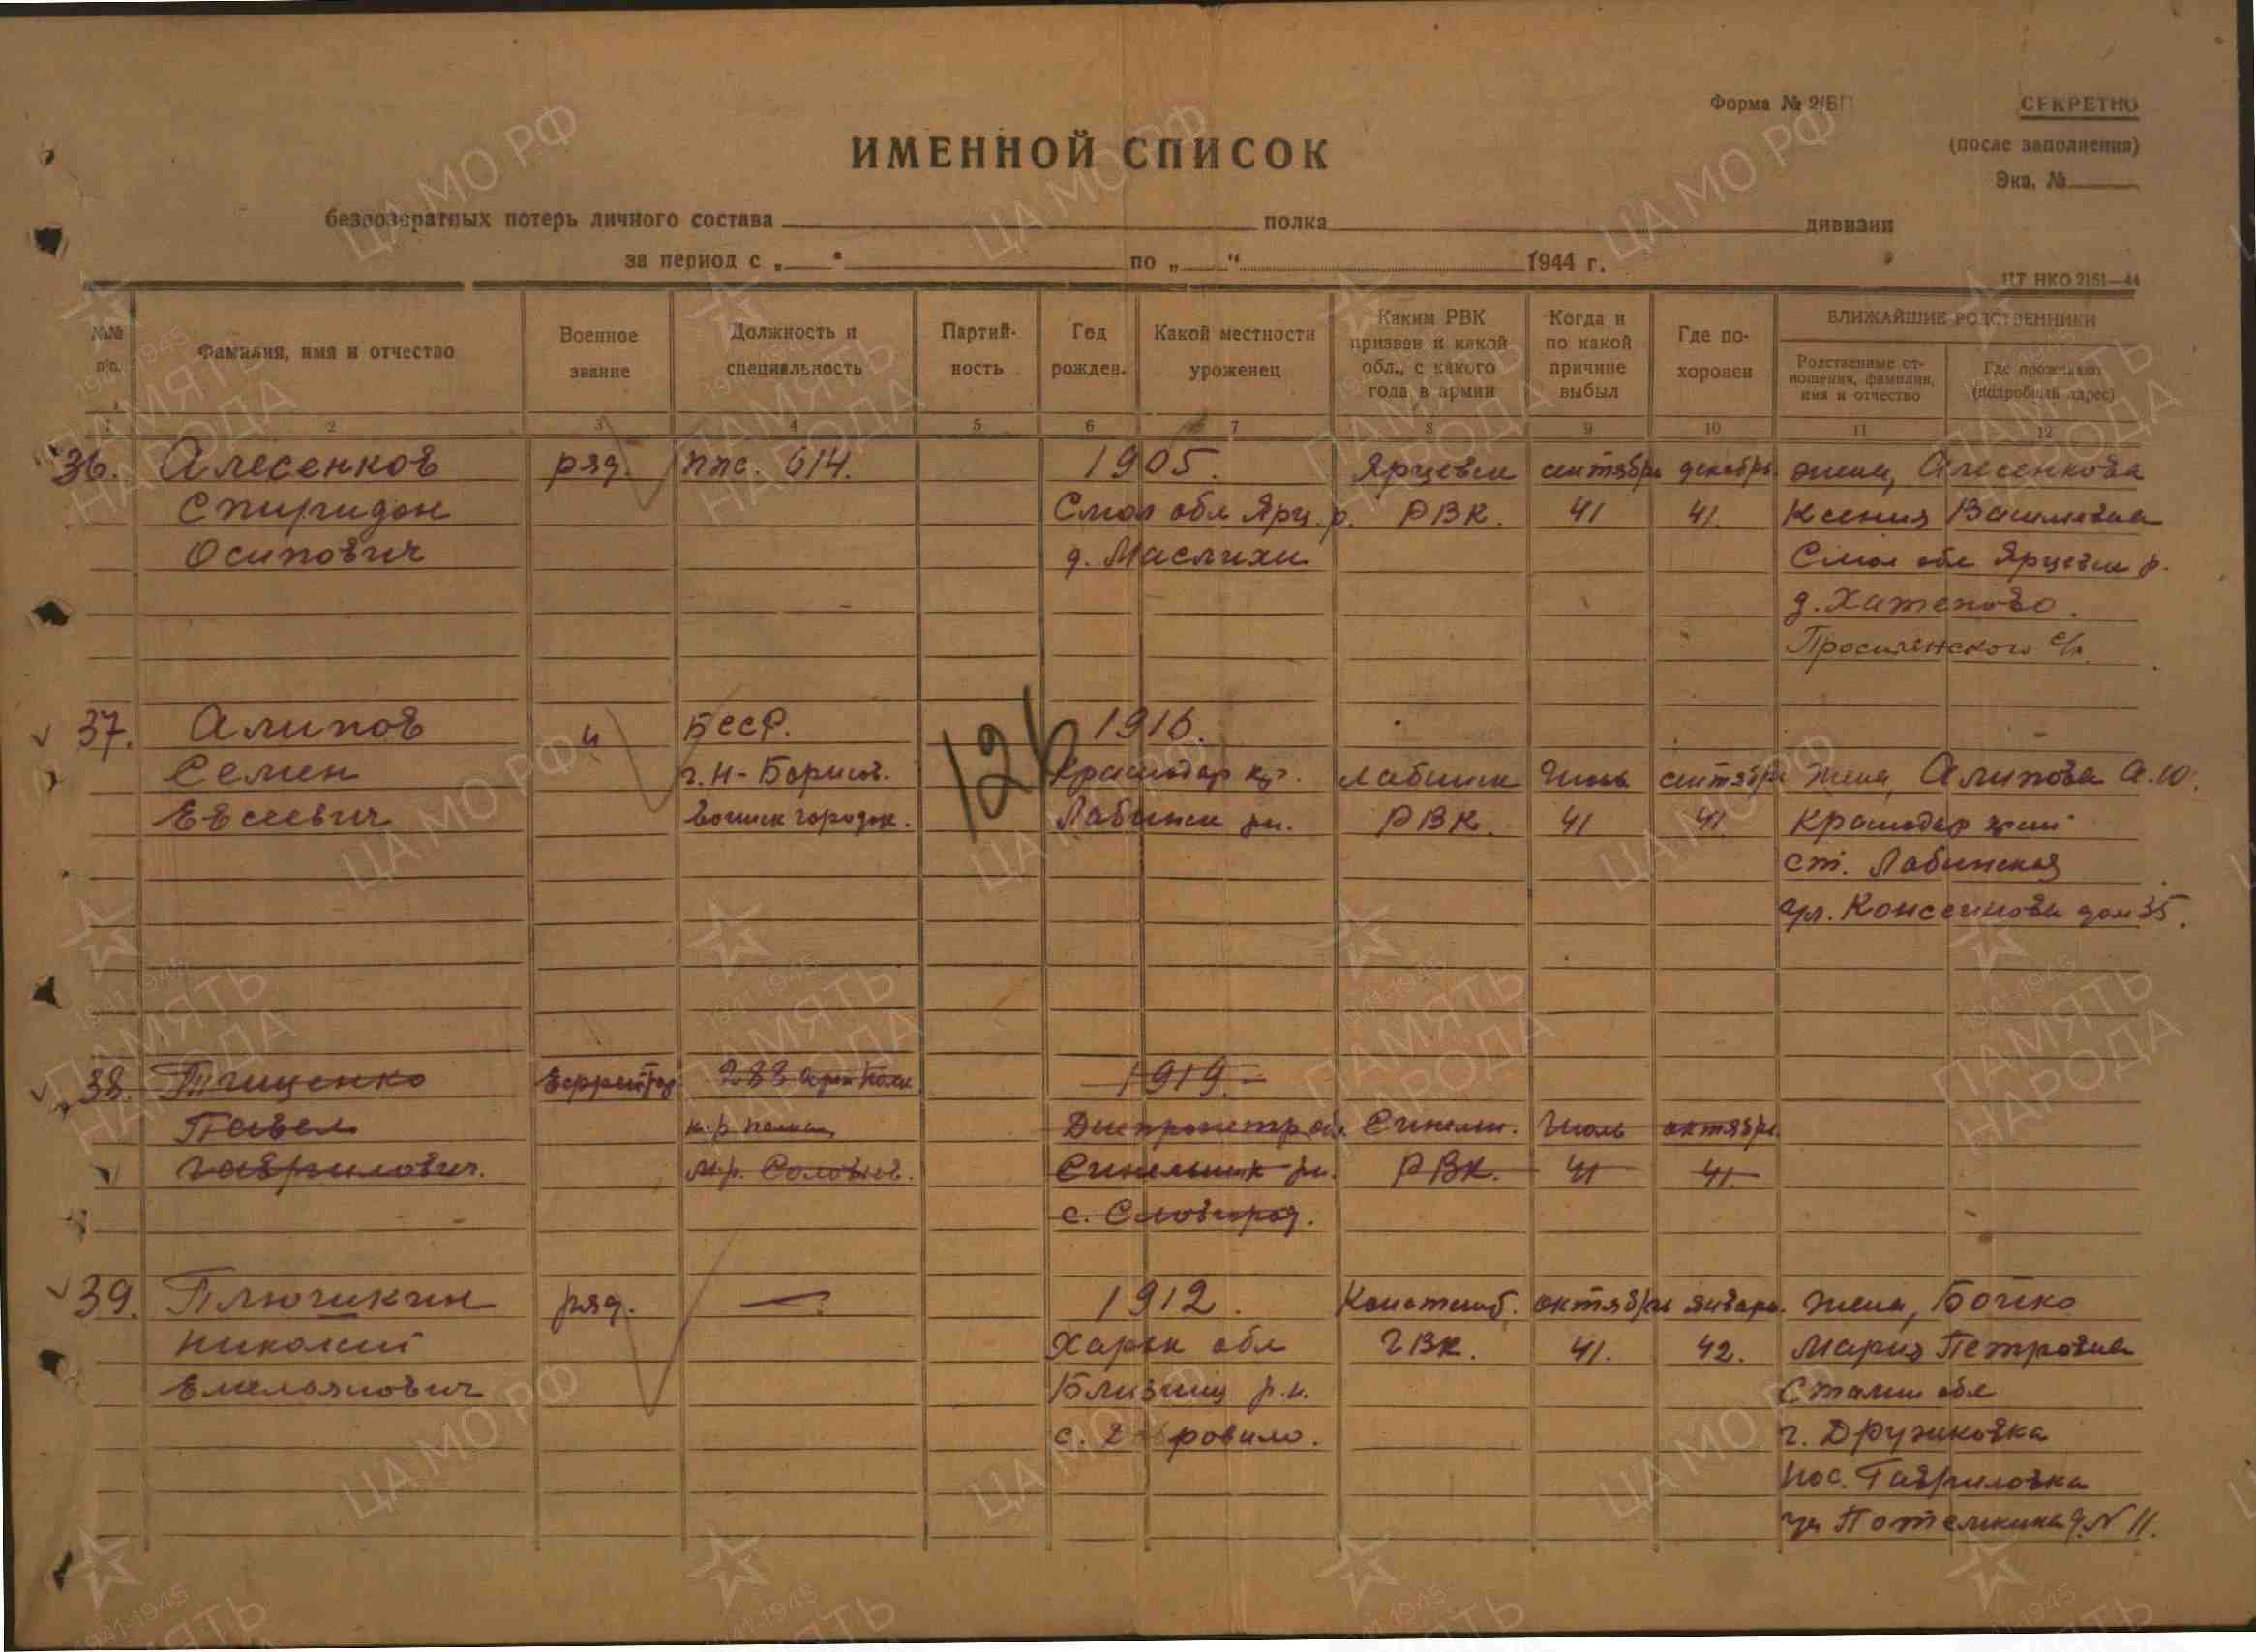 Форма № 2/БП
СЕКРЕТНО
(после заполнения)
Экз. №
ИМЕННОЙ СПИСОК
безвозвратных потерь личного состава полка дивизии
за период с „ “ по „ “ 1944 г.
ЦТ НКО 2151—44
№№ п/п.
Фамилия, имя и отчество
Военное звание
Должность и специальность
Партий- ность
Год рожден.
Какой местности уроженец
Каким РВК призван и какой обл., с какого года в армии
Когда и по какой причине выбыл
Где по- хоронен
БЛИЖАЙШИЕ РОДСТВЕННИКИ
Родственные от- ношения, фамилия, имя и отчество
Где проживают (подробный адрес)
1 2 3 4 5 6 7 8 9 10 11 12
36. Алесенков ряд. ппс. 614. 1905. Ярцевск сентябрь декабрь жена, Алесенкова
Спиридон Смол обл Ярц. р. РВК. 41 41. Ксения Васильевна
Осипович д. Маслихи Смол обл Ярцевск р.
д. Хатеново.
с/с.
37. Алипов " БССР. 1916.
Семен г. Н-Борисов. Краснодар кр. Лабинск Июль сентябрь жена, Алипова А.Ю.
Евсеевич воинск городок. Лабинск рн. РВК. 41 41 Краснодар край
ст. Лабинская
ул. дом 35.
126
38. Тищенко Ефрейтор 288 арт полк 1919.
Павел к-р полка Днепропетр обл. Синельн. Июль октябрь
Гаврилович. м-р. Соловьев. Синельник рн. РВК. 41 41.
с. Славгород.
39. Плючикин ряд. — 1912. Констант. октябрь январь. жена, Бойко
Николай Харьк обл ГВК. 41. 42. Мария Петровна
Емельянович Близнец р.н. Сталин обл
с. ровило. г. Дружковка
пос. Гавриловка
ул Потемкина д. N 11.
ЦА МО РФ
1941-1945
ПАМЯТЬ НАРОДА